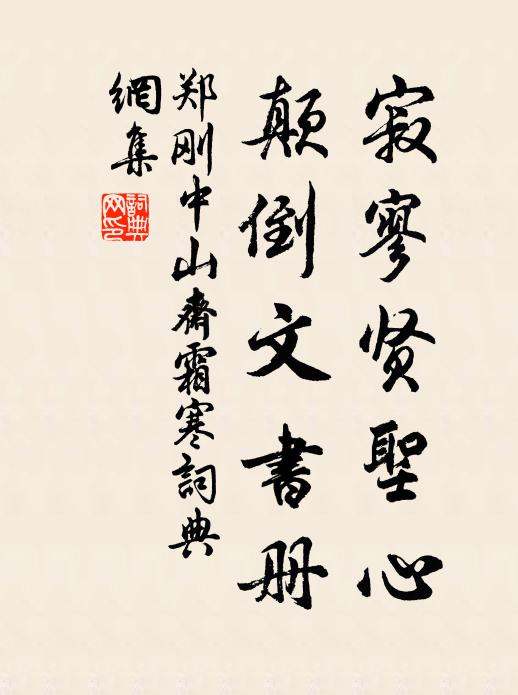 寂寥贤聖心
颠倒文書册
郑刚中山齋霜寒詞典
網集
詞典
网印